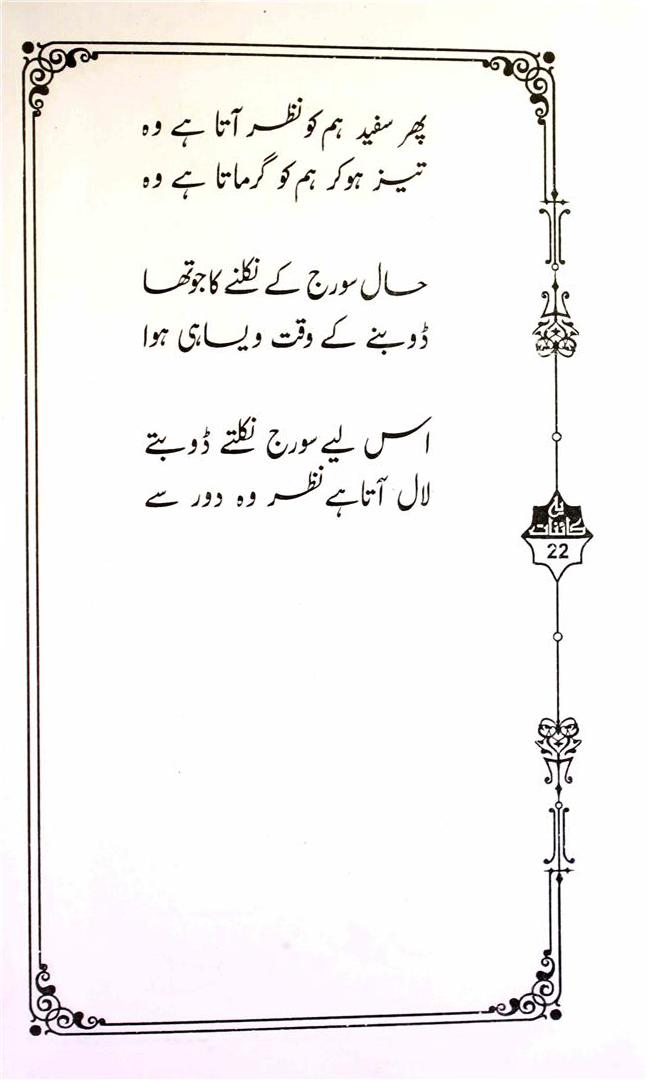 پھر سفید ہم کو نظر آتا ہے وہ
تیز ہوکر ہم کو گرماتا ہے وہ
حال سورج کے نکلنے کا جو تھا
ڈوبنے کے وقت ویسا ہی ہوا
اس لیے سورج نکلتے ڈوبتے
لال آتا ہے نظر وہ دور سے
یہ
کائنات
22